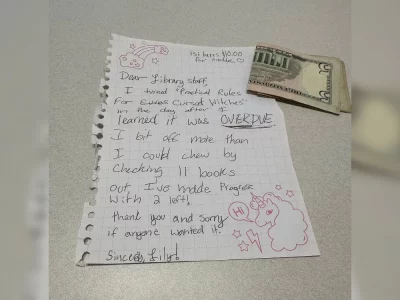 Dear Library staff,
I turned "Practical Rules
For Cursed Witches"
in the day after I
learned it was OVERDUE
I bit off more than
I could chew by
checking 11 books
out, I've made Progress
With 2 left!
thank you and sorry
if anyone wanted it.
Hi
Lily!